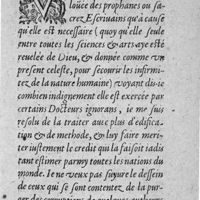 V
loüee des prophanes ou sa-
crez Escriuains qu'à cause
qu'elle est necessaire (quoy qu'elle seule
entre toutes les sciences & arts aye esté
reuelée de Dieu, & donnée comme vn
present celeste, pour secourir les infirmi-
tez de la nature humaine) voyant dis-ie
combien indignement elle est exercée par
certains Docteurs ignorans, ie me suis
resolu de la traiter auec plus d'edifica-
tion & de methode, & luy faire meri-
ter iustement le credit qui la faisoit iadis
tant estimer parmy toutes les nations du
monde. Ie ne veux pas suyure le dessein
de ceux qui se sont contentez de la pur-
ger des corruptions de quelques autheurs